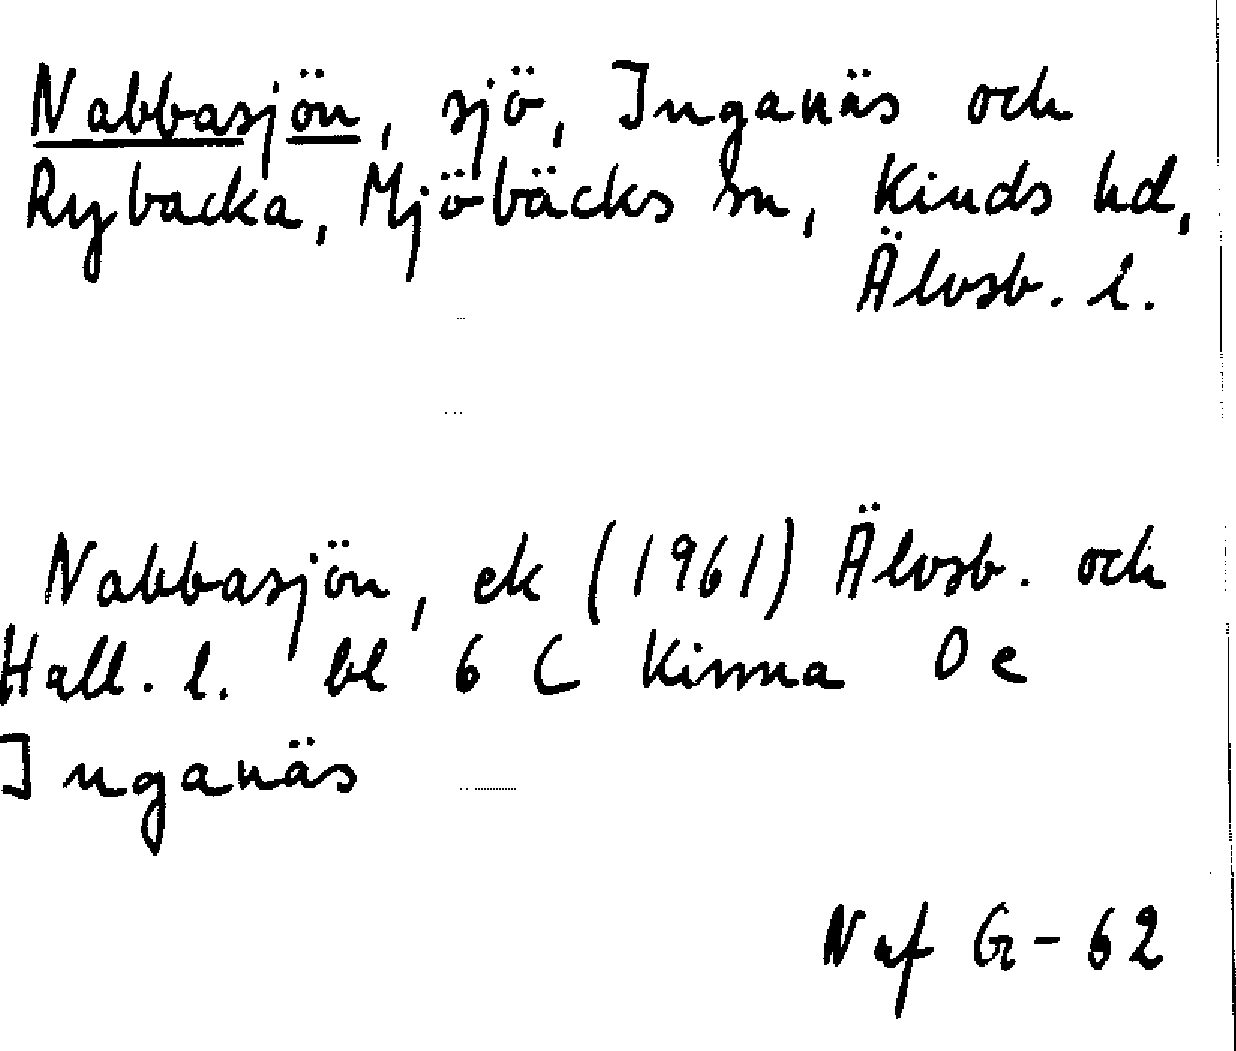 Nabbasjön, sjö, Inganäs och
Rybacka, Mjöbäcks sn, Kinds hd,
Älvsb. l.
Nabbasjön, ek (1961) Älvsb. och
Hall. l. bl 6 C Kinna 0 e
Inganäs
Naf G-62